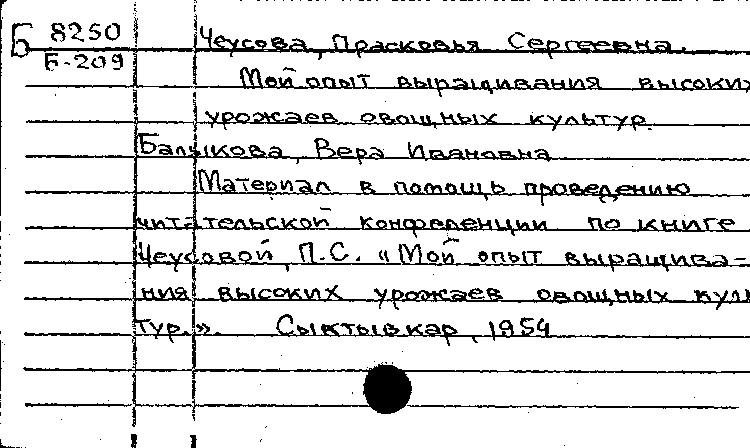 Б 8250
Б-209
Чеусова, Прасковья Сергеевна.
Мой опыт выращивания высоких
урожаев овощных культур.
Балыкова, Вера Ивановна
Материал в помощь проведению
читательской конференции по книге
Чеусовой, П.С. «Мой опыт выращива-
ния высоких урожаев овощных куль
тур.». Сыктывкар, 1954